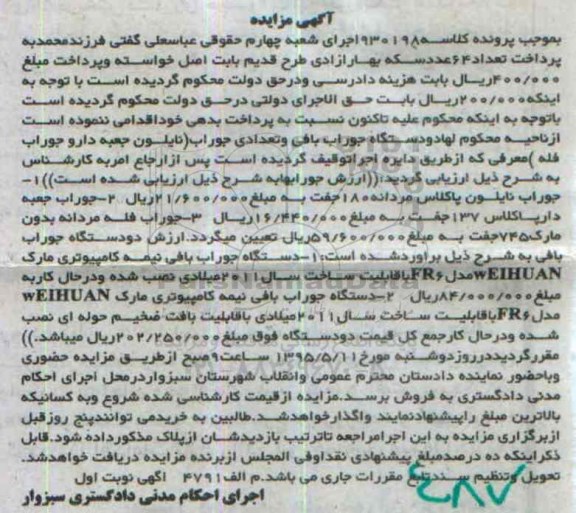 آگهی مزایده
بموجب پرونده کلاسه ۹۳۰۱۹۸اجرای شعبه چهارم حقوقی عباسعلی گفتی فرزندمحمدبه
پرداخت تعداد۶۴عددسکه بهارازادی طرح قدیم بابت اصل خواسته وپرداخت مبلغ
۴۰۰/۰۰۰ریال بابت هزینه دادرسی ودرحق دولت محکوم گردیده است با توجه به
اینکه۲۰۰/۰۰۰ریال بابت حق الاجرای دولتی درحق دولت محکوم گردیده است
باتوجه به اینکه محکوم علیه تاکنون نسبت به پرداخت بدهی خوداقدامی ننموده است
ازناحیه محکوم لهادودستگاه جوراب بافی وتعدادی جوراب(نایلون جعبه دارو جوراب
فله )معرفی که ازطریق دایره اجراتوقیف گردیده است پس ازارجاع امربه کارشناس
به شرح ذیل ارزیابی گردید:((ارزش جورابهابه شرح ذیل ارزیابی شده است))۱-
جوراب نایلون پاکلاس مردانه۱۸۰جفت به مبلغ۲۱/۶۰۰/۰۰۰ریال ۲-جوراب جعبه
دارپاکلاس ۱۳۷جفت به مبلغ۱۶/۴۴۰/۰۰۰ریال ۳-جوراب فله مردانه بدون
مارک۷۴۵جفت به مبلغ۵۹/۶۰۰/۰۰۰ریال تعیین میگردد.ارزش دودستگاه جوراب
بافی به شرح ذیل براوردشده است:۱-دستگاه جوراب بافی نیمه کامپیوتری مارک
WEIHUANمدلFR۶باقابلیت ساخت سال۲۰۱۱میلادی نصب شده ودرحال کاربه
مبلغ۸۴/۰۰۰/۰۰۰ریال ۲-دستگاه جوراب بافی نیمه کامپیوتری مارک WEIHUAN
مدلFR۶باقابلیت ساخت سال۲۰۱۱میلادی باقابلیت بافت ضخیم حوله ای نصب
شده ودرحال کارجمع کل قیمت دودستگاه فوق مبلغ۲۰۲/۲۵۰/۰۰۰ریال میباشد.))
مقررگردیددرروزدوشنبه مورخ۱۳۹۵/۵/۱۱ ساعت۹صبح ازطریق مزایده حضوری
وباحضور نماینده دادستان محترم عمومی وانقلاب شهرستان سبزواردرمحل اجرای احکام
مدنی دادگستری به فروش برسد.مزایده ازقیمت کارشناسی شده شروع وبه کسانیکه
بالاترین مبلغ راپیشنهادنمایند واگذارخواهدشد.طالبین به خریدمی توانندپنج روزقبل
ازبرگزاری مزایده به این اجرامراجعه تاترتیب بازدیدشان ازپلاک مذکورداده شود.قابل
ذکراینکه ده درصدمبلغ پیشنهادی نقداوفی المجلس ازبرنده مزایده دریافت خواهدشد.
تحویل وتنظیم سندتابع مقررات جاری می باشد.م الف۴۷۹۱ آگهی نوبت اول
اجرای احکام مدنی دادگستری سبزوار